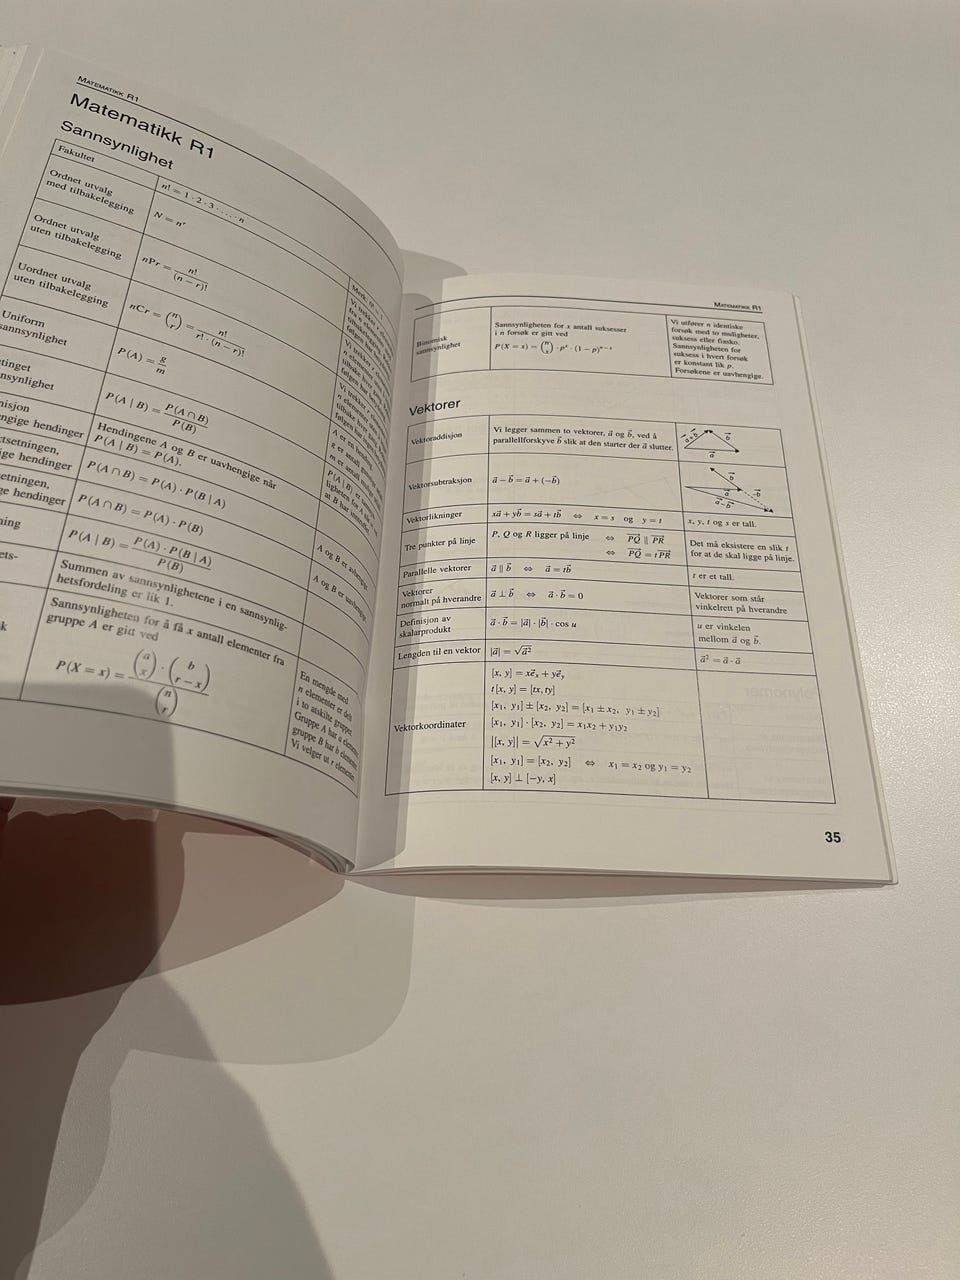 MATEMATIKK R1
Matematikk R1
Sannsynlighet
Fakultet
n! = 1 · 2 · 3 · … · n
Ordnet utvalg
med tilbakelegging
N = nʳ
Ordnet utvalg
uten tilbakelegging
nPr = n! / (n − r)!
Uordnet utvalg
uten tilbakelegging
nCr = (n r) = n! / (r! · (n − r)!)
Uniform
sannsynlighet
P(A) = g / m
P(A | B) = P(A ∩ B) / P(B)
hendinger
Hendingene A og B er uavhengige når
P(A | B) = P(A).
hendinger
P(A ∩ B) = P(A) · P(B | A)
A og B er avhengige
hendinger
P(A ∩ B) = P(A) · P(B)
A og B er uavhengige
P(A | B) = P(A) · P(B | A) / P(B)
Summen av sannsynlighetene i en sannsynlig-
hetsfordeling er lik 1.
Sannsynligheten for å få x antall elementer fra
gruppe A er gitt ved
P(X = x) = (a x) · (b r − x) / (n r)
En mengde med
n elementer er delt
i to atskilte grupper.
Gruppe A har a
gruppe B har b
Vi velger ut r
MATEMATIKK R1
Binomisk
sannsynlighet
Sannsynligheten for x antall suksesser
i n forsøk er gitt ved
P(X = x) = (n x) · pˣ · (1 − p)ⁿ⁻ˣ
Vi utfører n identiske
forsøk med to muligheter,
suksess eller fiasko.
Sannsynligheten for
suksess i hvert forsøk
er konstant lik p.
Forsøkene er uavhengige.
Vektorer
Vektoraddisjon
Vi legger sammen to vektorer, a⃗ og b⃗, ved å
parallellforskyve b⃗ slik at den starter der a⃗ slutter.
a⃗+b⃗ b⃗
a⃗
Vektorsubtraksjon
a⃗ − b⃗ = a⃗ + (−b⃗)
b⃗
a⃗ −b⃗
a⃗−b⃗
Vektorlikninger
xa⃗ + yb⃗ = sa⃗ + tb⃗ ⇔ x = s og y = t
x, y, t og s er tall.
Tre punkter på linje
P, Q og R ligger på linje ⇔ PQ⃗ ∥ PR⃗
⇔ PQ⃗ = tPR⃗
Det må eksistere en slik t
for at de skal ligge på linje.
Parallelle vektorer
a⃗ ∥ b⃗ ⇔ a⃗ = tb⃗
t er et tall.
Vektorer
normalt på hverandre
a⃗ ⊥ b⃗ ⇔ a⃗ · b⃗ = 0
Vektorer som står
vinkelrett på hverandre
Definisjon av
skalarprodukt
a⃗ · b⃗ = |a⃗| · |b⃗| · cos u
u er vinkelen
mellom a⃗ og b⃗.
Lengden til en vektor
|a⃗| = √a⃗²
a⃗² = a⃗ · a⃗
Vektorkoordinater
[x, y] = xe⃗ₓ + ye⃗ᵧ
t[x, y] = [tx, ty]
[x₁, y₁] ± [x₂, y₂] = [x₁ ± x₂, y₁ ± y₂]
[x₁, y₁] · [x₂, y₂] = x₁x₂ + y₁y₂
|[x, y]| = √x² + y²
[x₁, y₁] = [x₂, y₂] ⇔ x₁ = x₂ og y₁ = y₂
[x, y] ⊥ [−y, x]
35